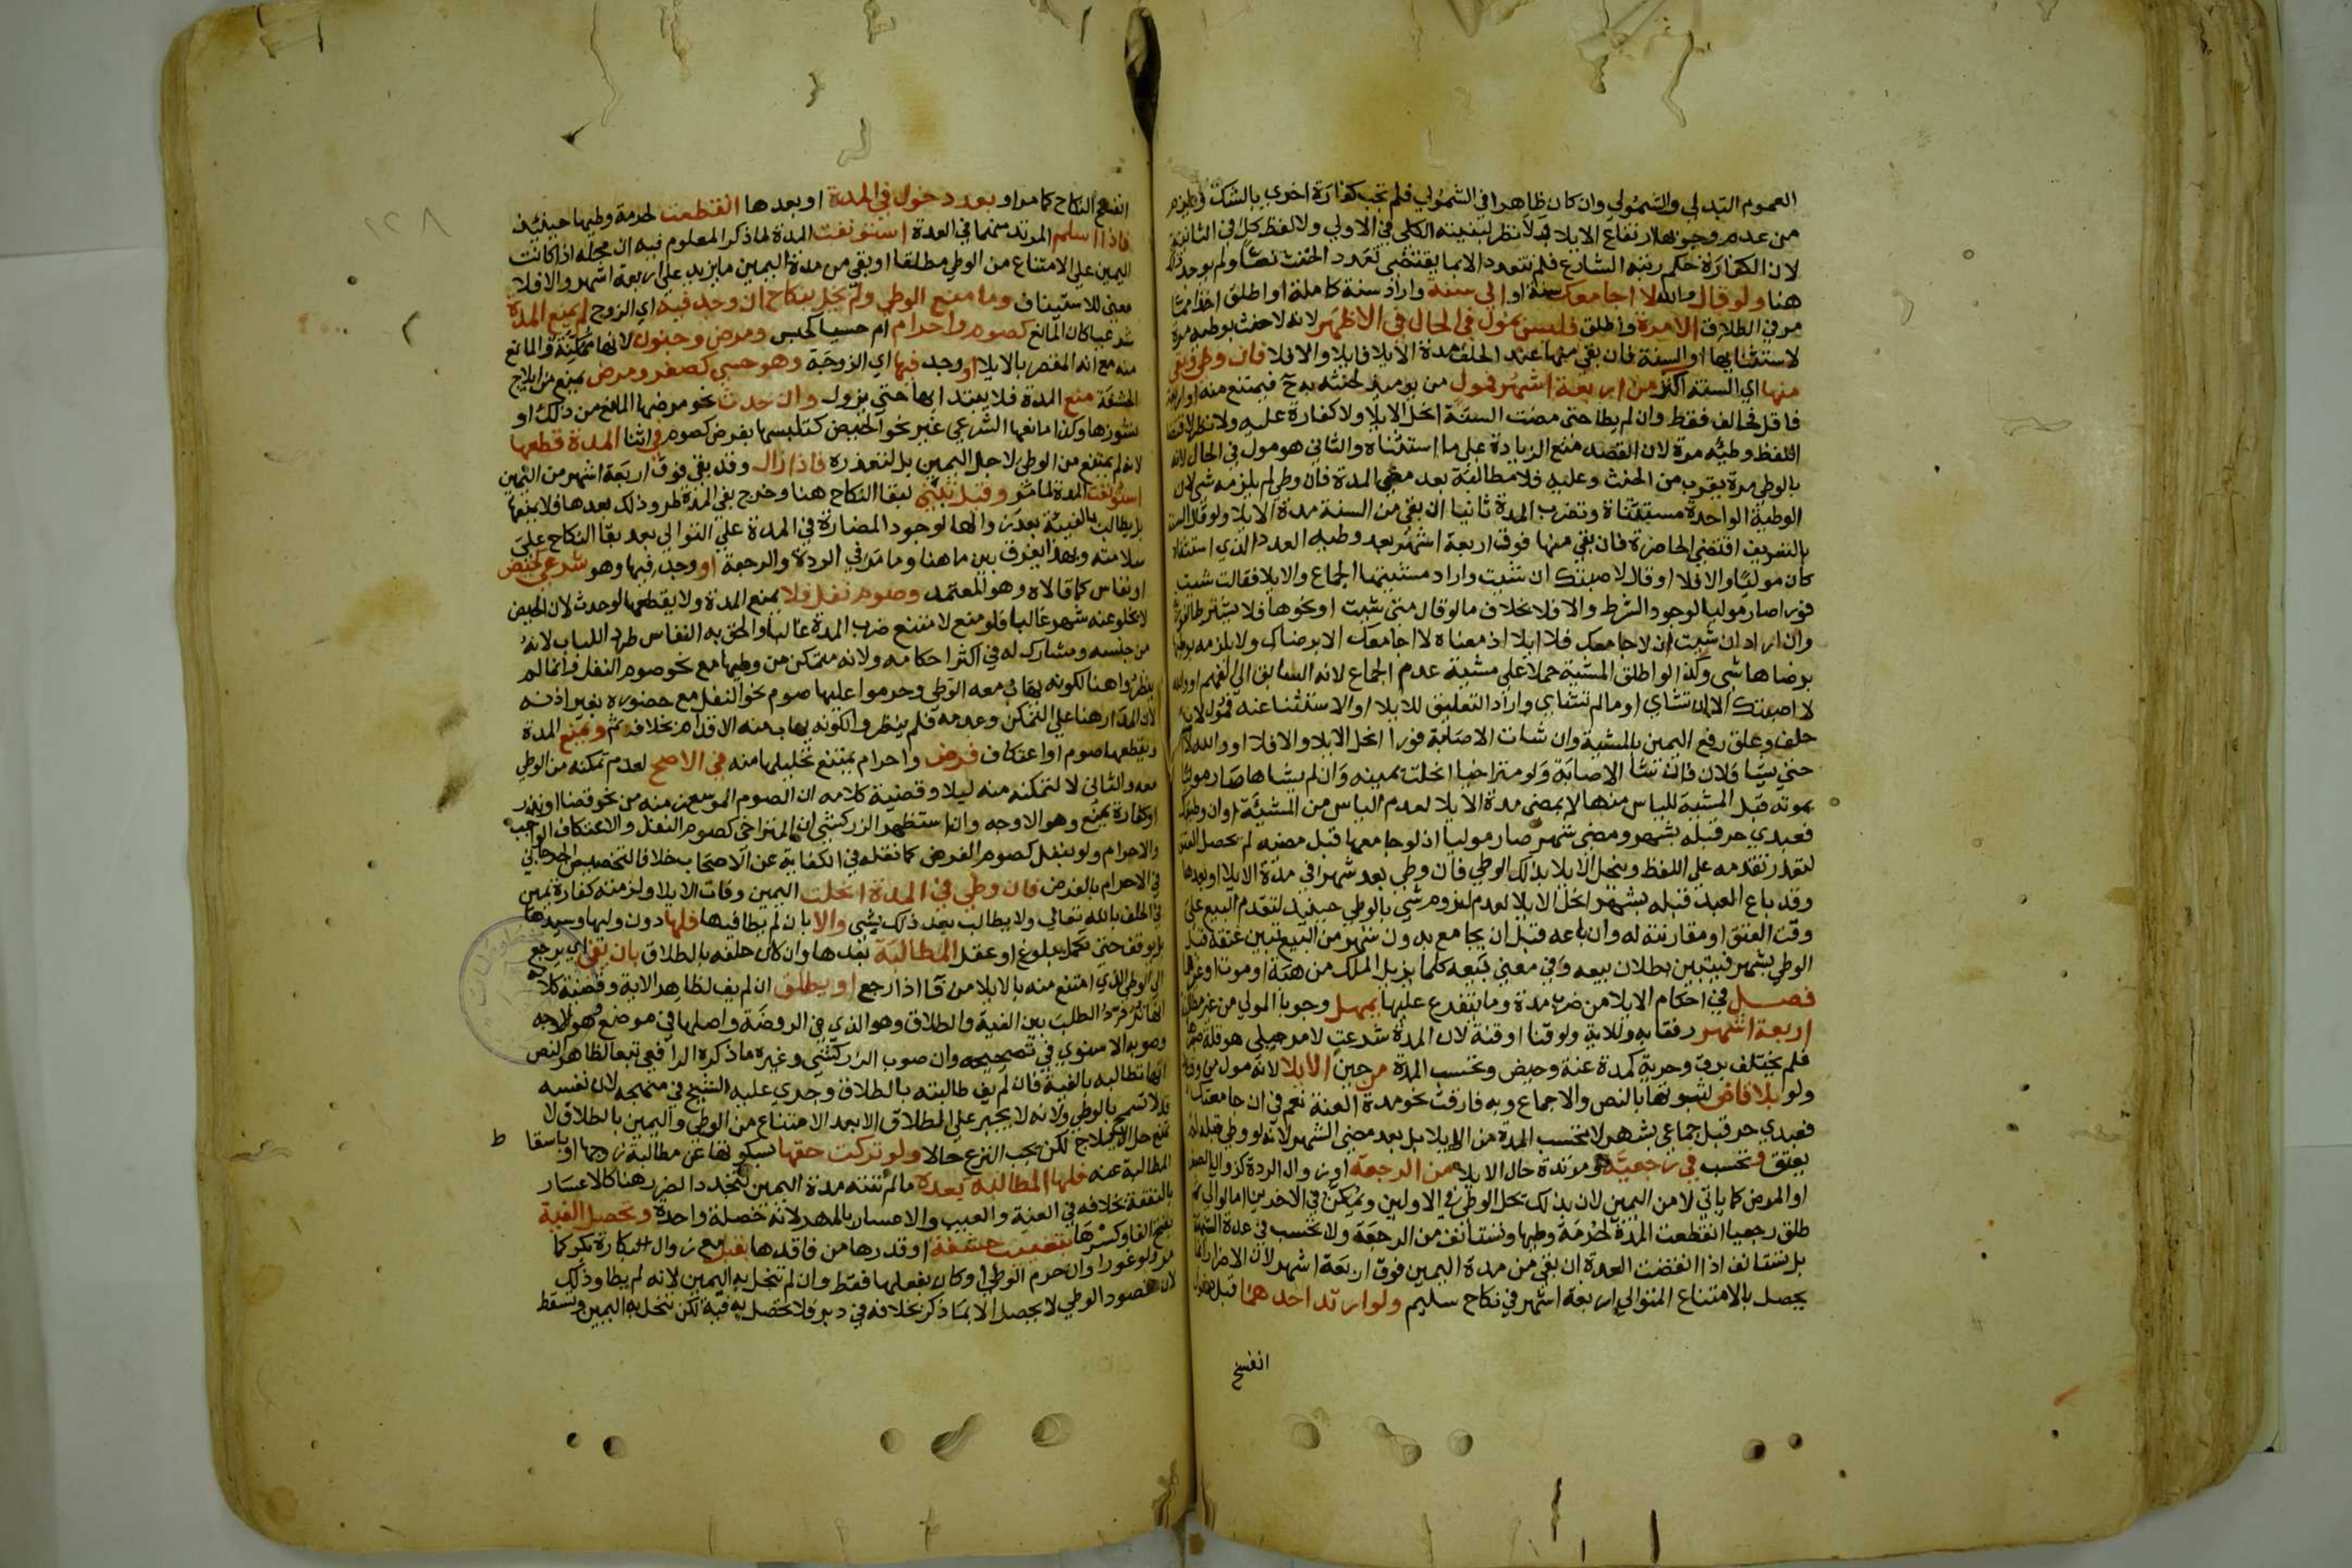 العموم البدلي والشمولي وان كان ظاهرا في الشمولي فلم تجب كفارة اخري بالشك
من عدم وجوبها ارتفاع الايلا لانظر لبقيته الكلي في الاولي ولا لفظ كل في الثانية
لان الكفارة حكم رتبه الشارع فلم تتعدد الا بما يقتضي تعدد الحنث نصا ولم يوجد ذلك
هنا ولو قال والله لا اجامعك سنة او الي سنة واراد سنة كاملة او اطلق اخذا مما
مر في الطلاق الا مرة واطلق فليس بمول في الحال في الاظهر لانه لا حنث بوطيه مرة
لاستثنايها او السنة فان بقي منها عند الحلف مدة الايلا فايلا والا فلا فان وطي وبقي
منها اي السنة اكثر من اربعة اشهر فمول من يوميذ لحنثه به ح فيمتنع منه او اربعة
فاقل فحالف فقط وان لم يطا حتي مضت السنة انحل الايلا ولا كفارة عليه ولا نظر لاقتضا
اللفظ وطيه مرة لان القصد منع الزيادة علي ما استثناه والثاني هو مول في الحال لانه
بالوطي مرة يقرب من الحنث وعليه فلا مطالبة بعد مضي المدة فان وطي لم يلزمه شي لان
الوطية الواحدة مستثناة وتضرب المدة ثانيا ان بقي من السنة مدة الايلا ولو قال السنة
بالتعريف اقتضي الحاضرة فان بقي منها فوق اربعة اشهر بعد وطيه العدد الذي استثناه
كان موليا والا فلا او قال لاصبتك ان شيت واراد مشيتها الجماع والايلا فقالت شيت
فورا صار موليا لوجود الشرط والا فلا بخلاف ما لو قال متي شيت او نحوها فلا يشترط الفور
وان اراد ان شيت ان لا جامعك فلا ايلا اذ معناه لا اجامعك الا برضاك ولا يلزمه بوطيها
برضاها شي وكذا لو اطلق المشية حملا علي مشية عدم الجماع لانه السابق الي الفهم او والله
لا اصبتك الا ان تشاي او ما لم تشاي واراد التعليق للايلا او الاستثنا عنه فمول لانه
حلف وعلق رفع اليمين بالمشية وان شات الاصابة فورا انحل الايلا والا فلا او والله لا
حتي يشا فلان فان شا الاصابة ولو متراخيا انحلت يمينه وان لم يشاها صار موليا
بموته قبل المشية لليأس منها لا بمضي مدة الايلا لعدم اليأس من المشيئة او ان وطيتك
فعبدي حر قبله بشهر ومضي شهر صار موليا اذ لو جامعها قبل مضيه لم يحصل العتق
لتعذر تقدمه علي اللفظ وينحل الايلا بذلك الوطي فان وطي بعد شهر في مدة الايلا او بعدها
وقد باع العبد قبله بشهر انحل الايلا لعدم لزوم شي بالوطي حينيذ لتقدم البيع علي
وقت العتق او مقارنته له وان باعه قبل ان يجامع بدون شهر من البيع تبين عتقه قبل
الوطي بشهر فيتبين بطلان بيعه وفي معني بيعه كلما يزيل الملك من هبة او موت او غيرهما
فصل في احكام الايلا من ضرب مدة وما يتفرع عليها يمهل وجوبا المولي من غير مطالبة
اربعة اشهر رفقا به وللاية ولو قنا او قنة لان المدة شرعت لامر جبلي هو قلة صبرها
فلم يختلف برق وحرية كمدة عنة وحيض وتحسب المدة من حين الايلا لانه مول من وقته
ولو بلا قاض لثبوتها بالنص والاجماع وبه فارقت نحو مدة العنة نعم في ان جامعتك
فعبدي حر قبل جماعي بشهر لا تحسب المدة من الايلا بل بعد مضي الشهر لانه لو وطي قبله لم
يعتق وتحسب في رجعية ومرتدة حال الايلا من الرجعة او زوال الردة كزوال الصغر
او المرض كما ياتي لا من اليمين لان بذلك تحل الوطي في الاولين ويمكن في الاخرين اما لو الي ثم
طلق رجعيا انقطعت المدة لحرمة وطيها وتستانف من الرجعة ولا تحسب في عدة الشبهة
بل تستانف اذا انقضت العدة ان بقي من مدة اليمين فوق اربعة اشهر لان الاضرار انما
يحصل بالامتناع المتوالي اربعة اشهر في نكاح سليم ولو ارتد احدهما قبل دخول
انفسخ
انفسخ النكاح كما مر او بعد دخول في المدة او بعدها انقطعت لحرمة وطيها حينيذ
فاذا اسلم المرتد منهما في العدة استونفت المدة لما ذكر المعلوم فيه ان محله اذا كانت
اليمين علي الامتناع من الوطي مطلقا او بقي من مدة اليمين ما يزيد علي اربعة اشهر والا فلا
معني للاستيناف وما منع الوطي ولم يخل بنكاح ان وجد فيه اي الزوج لم يمنع المدة
شرعيا كان المانع كصوم واحرام ام حسيا كحبس ومرض وجنون لانها ممكنة والمانع
منه مع انه المقصر بالايلا او وجد فيها اي الزوجة وهو حسي كصغر ومرض يمنع من ايلاج
الحشفة منع المدة فلا يبتدا بها حتي يزول وان حدث نحو مرضها المانع من ذلك او
نشوزها وكذا مانعها الشرعي غير نحو الحيض كتلبسها بفرض كصوم في اثنا المدة قطعها
لانه لم يمتنع من الوطي لاجل اليمين بل لتعذره فاذا زال وقد بقي فوق اربعة اشهر من اليمين
استونفت المدة لما مر وقيل تبني لبقا النكاح هنا وخرج بفي المدة طرو ذلك بعدها فلا يمنعها
بل يطالب بالفيئة بعد زوالها لوجود المضارة في المدة علي التوالي بعد بقا النكاح علي
سلامته وبهذا يفرق بين ما هنا وما مر في الردة والرجعة او وجد فيها وهو شرعي كحيض
او نفاس كما قالاه وهو المعتمد وصوم نفل فلا يمنع المدة ولا يقطعها لو حدث لان الحيض
لا يخلو عنه شهر غالبا فلو منع لامتنع ضرب المدة غالبا والحق به النفاس طردا للباب لانه
من جنسه ومشارك له في اكثر احكامه ولانه متمكن من وطيها مع نحو صوم النفل وانما لم
ينظروا هنا لكونه يهاب معه الوطي وحرموا عليها صوم نحو النفل مع حضوره بغير اذنه
لان المدار هنا علي التمكن وعدمه فلم ينظروا لكونه يهاب منه الاقدام بخلافه ثم ويمنع المدة
ويقطعها صوم او اعتكاف فرض واحرام يمتنع تحليلها منه في الاصح لعدم تمكنه من الوطي
معه والثاني لا لتمكنه منه ليلا وقضية كلامه ان الصوم الموسع زمنه من نحو قضا او نذر
او كفارة يمنع وهو الاوجه وان استظهر الزركشي ان المتراخي كصوم النفل والاعتكاف الواجب
والاحرام ولو بنفل كصوم الفرض كما نقله في الكفاية عن الاصحاب خلافا لتخصيص الجرجاني
في الاحرام بالفرض فان وطي في المدة انحلت اليمين وفات الايلا ولزمته كفارة يمين
في الحلف بالله تعالي ولا يطالب بعد ذلك بشي والا بان لم يطا فيها فلها دون وليها وسيدها
بل يوقف حتي تكمل ببلوغ او عقل المطالبة بعدها وان كان حلفه بالطلاق بان يفي اي يرجع
الي الوطي الذي امتنع منه بالايلا من فا اذا رجع او يطلق ان لم يف لظاهر الاية وقضية كلامه
انها تردد الطلب بين الفية والطلاق وهو الذي في الروضة واصلها في موضع وهو الاوجه
وصوبه الاسنوي في تصحيحه وان صوب الزركشي وغيره ما ذكره الرافعي تبعا لظاهر النص
انها تطالبه بالفية فان لم يف طالبته بالطلاق وجري عليه الشيخ في منهجه لان نفسه
قد لا تسمح بالوطي ولانه لا يجبر علي الطلاق الا بعد الامتناع من الوطي واليمين بالطلاق لا
تمنع حل الايلاج لكن يجب النزع حالا ولو تركت حقها بسكوتها عن مطالبة زوجها او باسقاط
المطالبة عنه فلها المطالبة بعده ما لم تنته مدة اليمين لتجدد الضرر هنا كالاعسار
بالنفقة بخلافه في العنة والعيب والاعسار بالمهر لانه خصلة واحدة وتحصل الفية
بفتح الفا وكسرها بتغييب حشفة او قدرها من فاقدها بقبل مع زوال البكارة بكر كما
مر ولو غورا وان حرم الوطي او كان بفعلها فقط وان لم تنحل به اليمين لانه لم يطا وذلك
لان مقصود الوطي لا يحصل الا بما ذكر بخلافه في دبر فلا تحصل به فية لكن تنحل به اليمين ويسقط